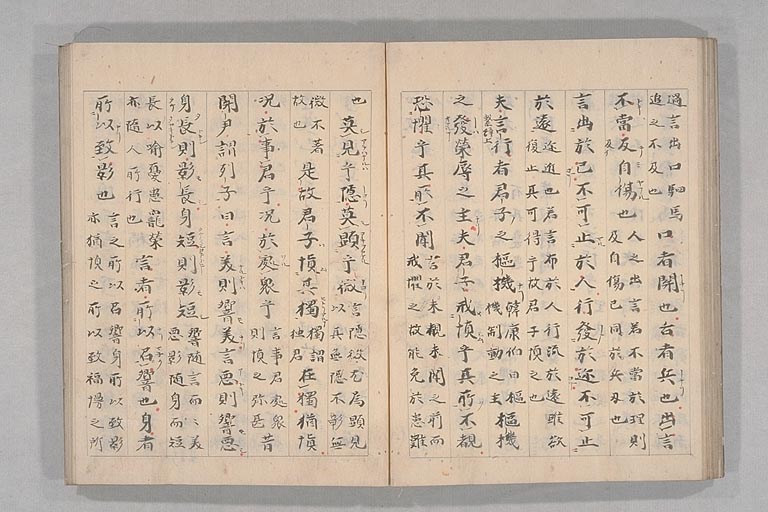 過言出口駟馬追之不及也口者關也舌者兵也出言
不當反自傷也人之出言若不當於理則反自傷己同於兵刃也
言出於己不可止於人行發於迩不可止
於遠若言布於人行流於遠雖欲復止其可得乎故君子慎之也
夫言行者君子之樞機韓康伯曰樞機制動之主樞機
之發榮辱之主夫君子戒慎乎其所不覩
恐懼乎其所不聞言於未覩未聞之前而戒懼之故能免於患難
也莫見乎隱莫顯乎微言隱後必為顯見以其無隱不彰無
微不著故也是故君子慎其獨獨謂独居在獨猶慎
況於事君乎況於處衆乎言事君處衆則慎之弥甚昔
關尹謂列子曰言美則響美言惡則響惡
身長則影長身短則影短響随言而々美惡影随身而短
長以喻憂患寵榮亦随人所行也言者所以召響也身者
所以致影也言之所以召響身所以致影亦猶慎之所以致福慢之所